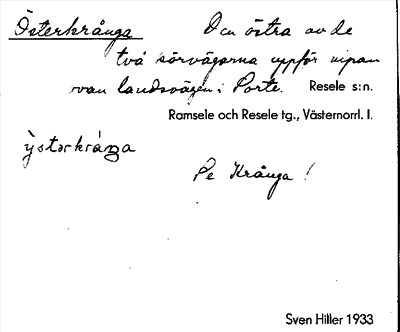 Österkrånga Den östra av de
två körvägarna uppför nipan
ovan landsvägen i Porte. Resele s:n.
Ramsele och Resele tg., Västernorrl. l.
ÿstərkråŋa
Se Krånga!
Sven Hiller 1933